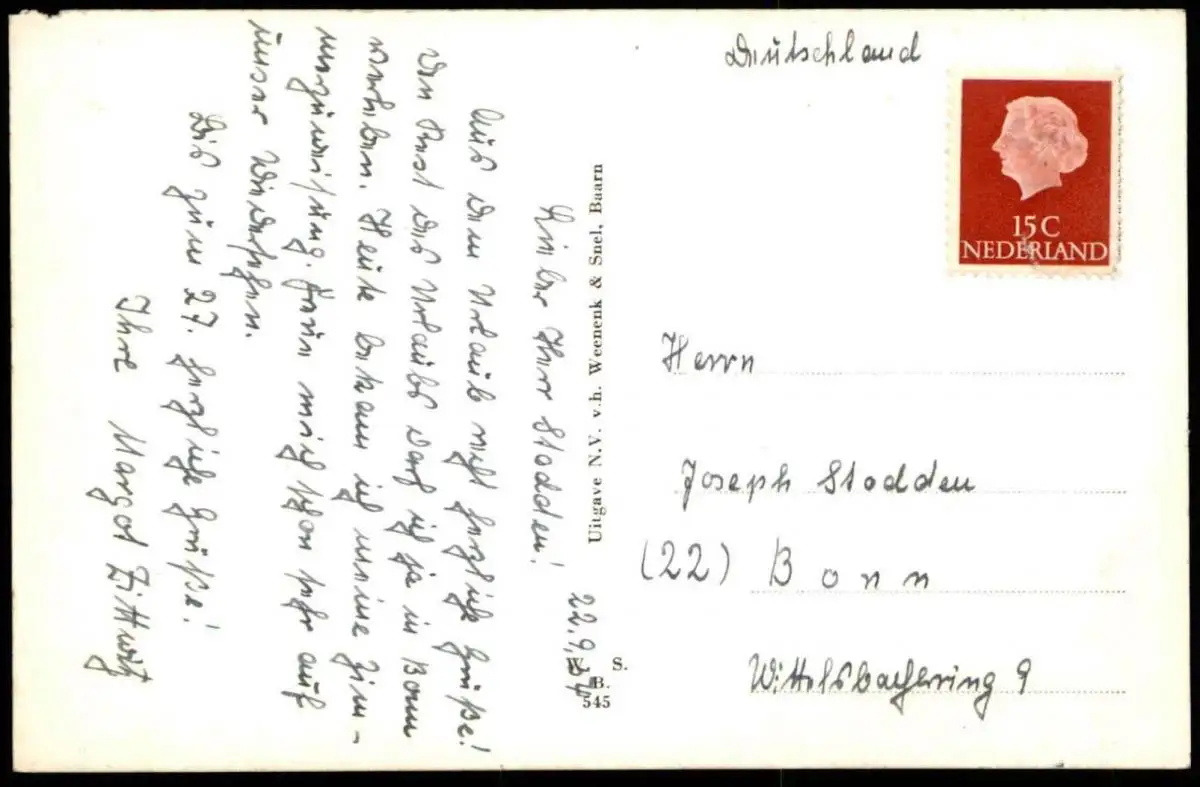 22.9.54
Lieber Herr Stodden!
Aus dem Urlaub recht herzliche Grüße!
Den Rest des Urlaubs darf ich ja in Bonn
verleben. Heute bekam ich meine Zim-
merzuweisung. Freue mich schon sehr auf
unser Wiedersehen.
Bis zum 27. herzliche Grüße!
Ihre Margot
Uitgave N.V. v.h. Weenenk & Snel, Baarn
W. S.
B.
545
Deutschland
15C
NEDERLAND
Herrn
Joseph Stodden
(22) Bonn
Wittelsbacherring 9